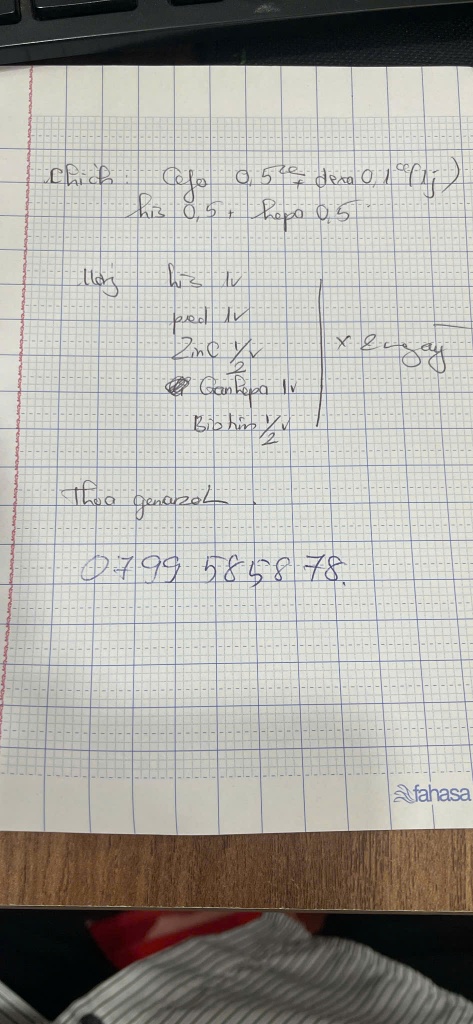 Chích: Cefo 0,5cc + dexa 0,1cc (1j)
his 0,5 + hepa 0,5
his 1v
pred 1v
ZinC 1/2v
Ganhepa 1v
Biotin 1/2v
x 2 ngày
Thoa genazol
0799 585878.
fahasa